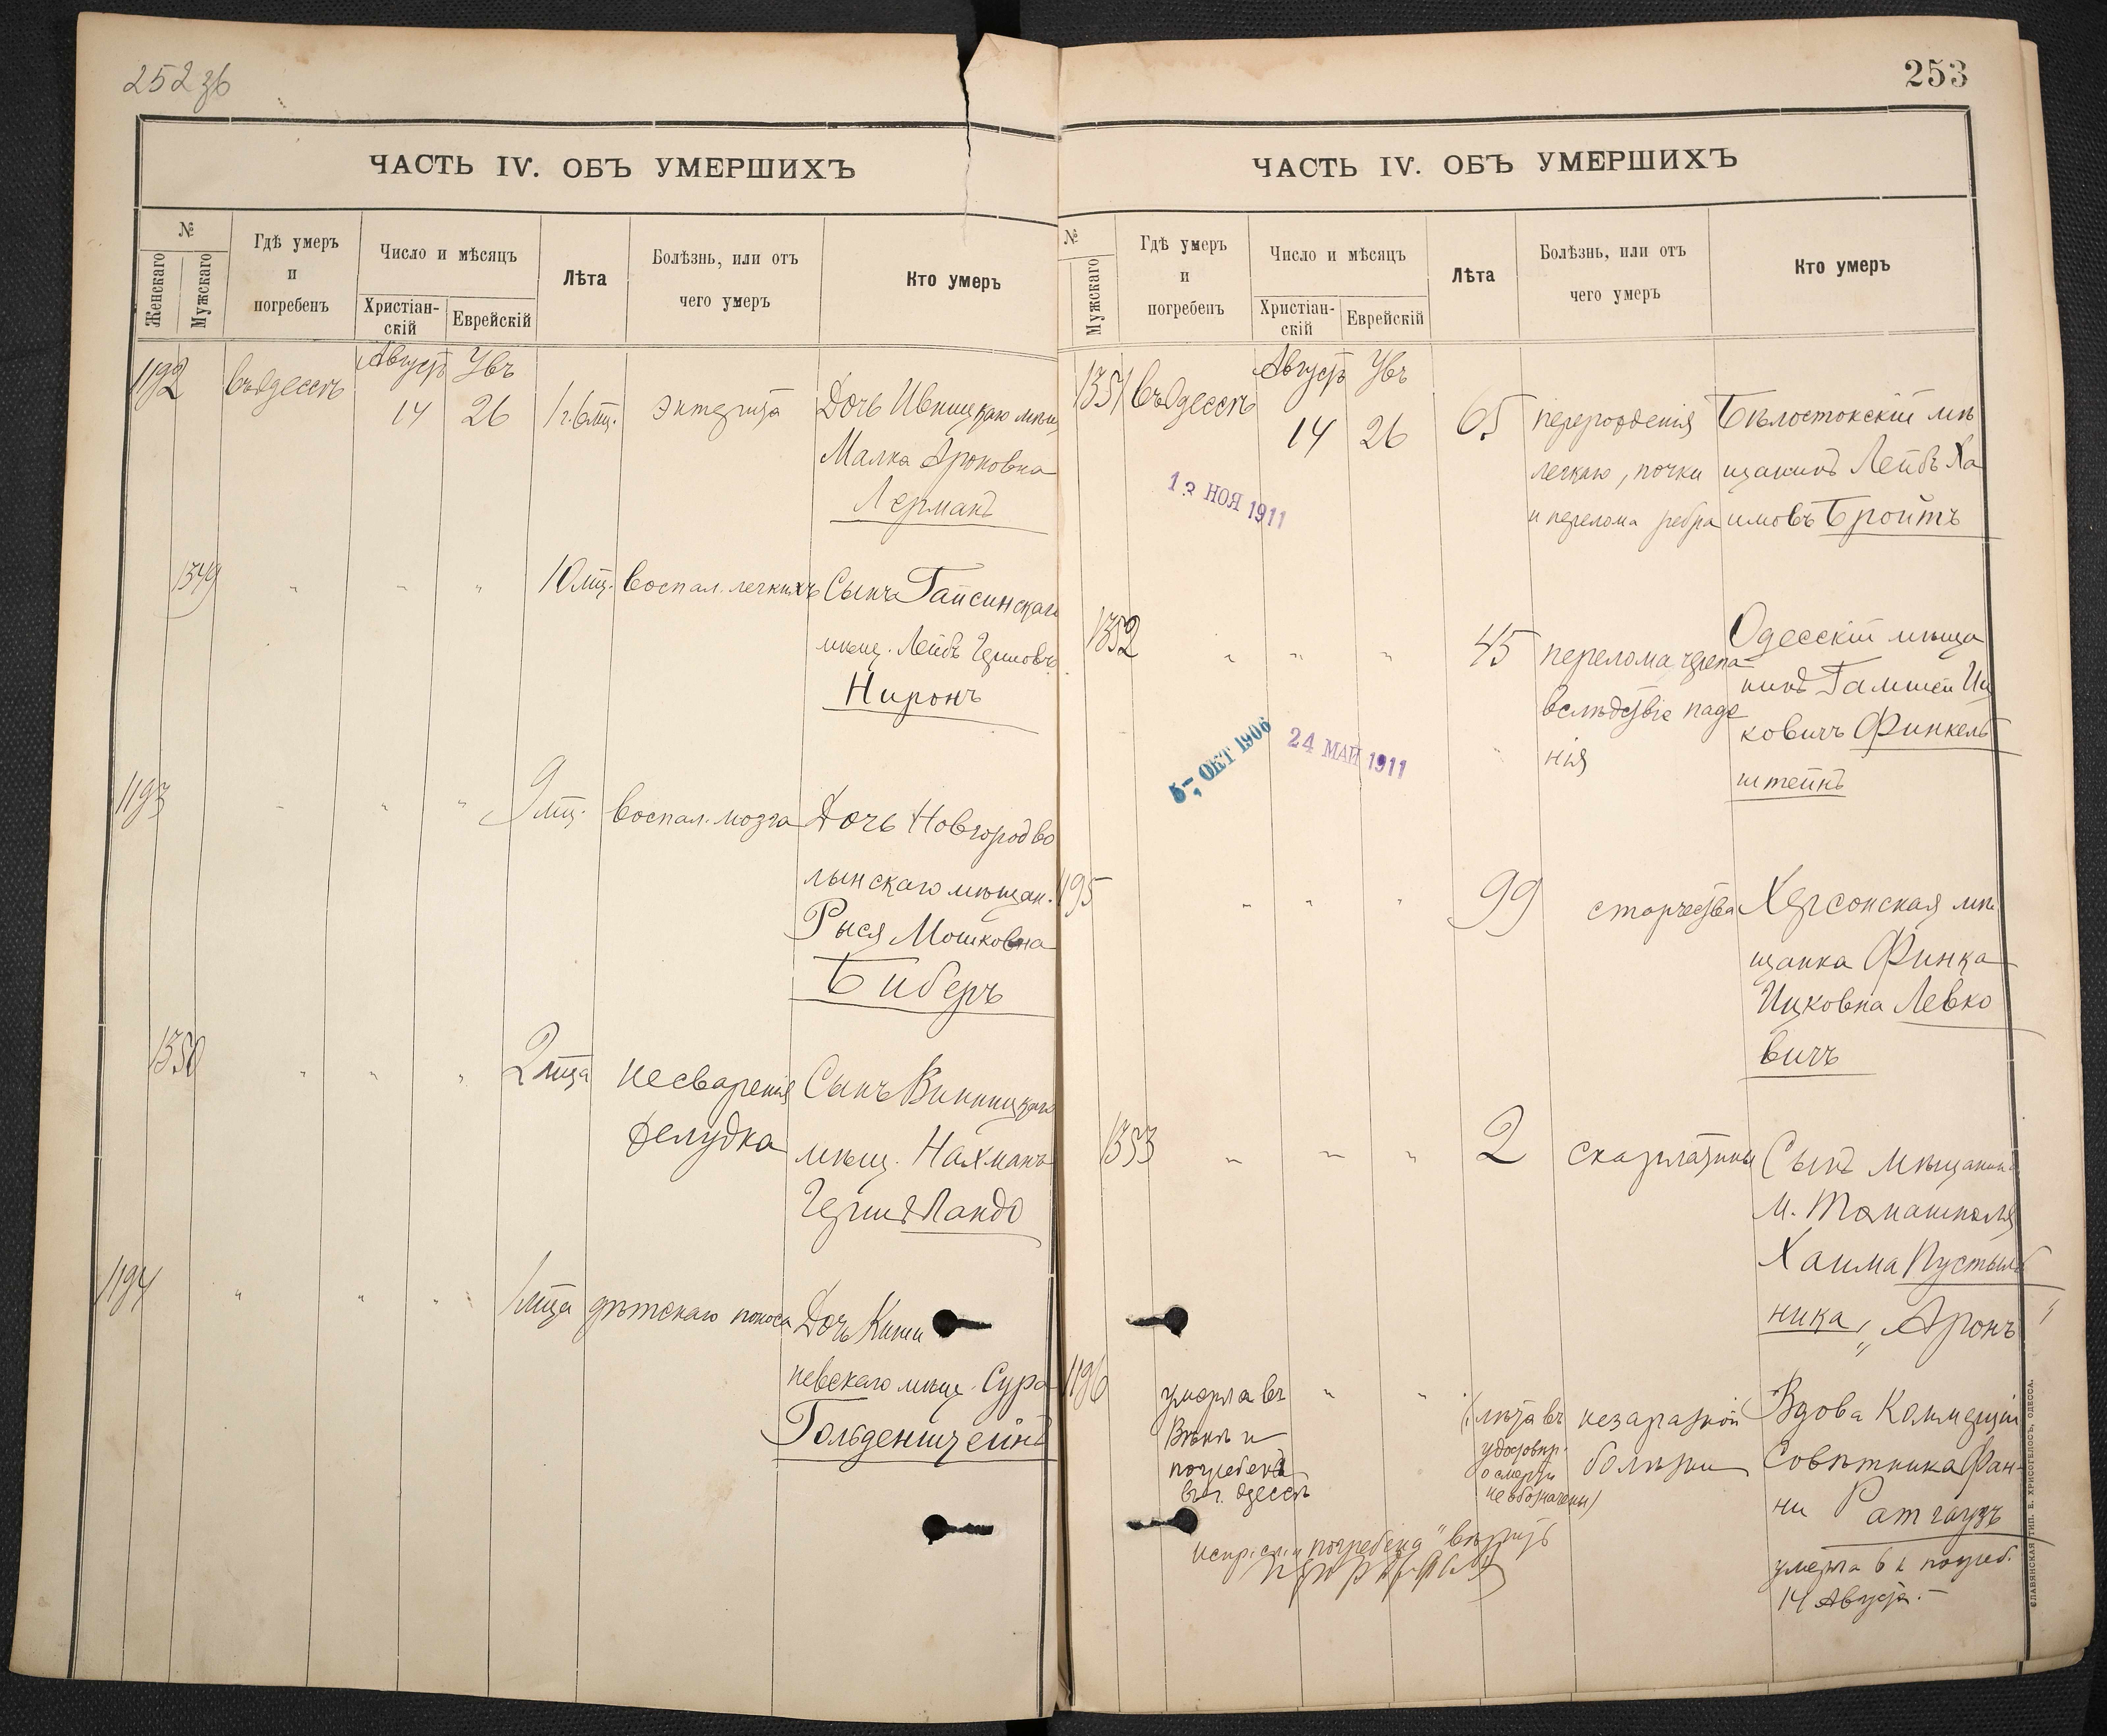 252 зб
ЧАСТЬ IV. ОБЪ УМЕРШИХЪ
№
Женскаго
Мужскаго
Гдѣ умеръ
и
погребенъ
Число и мѣсяцъ
Христіан-
скій
Еврейскій
Лѣта
Болѣзнь, или отъ
чего умеръ
Кто умеръ
1192
въ Одессѣ
Августъ
14
Увъ
26
1 г. 6 мц.
энтерита
Дочь
Малка Ароновна
Лерманъ
1349
"
"
"
10 мц.
воспал. легкихъ
Сынъ Гайсинскаго
мѣщ. Лейбъ
Ниронъ
1193
"
"
"
9 мц.
воспал. мозга
Дочь Новгородво
лынскаго мѣщан.
Рыся Мошковна
Биберъ
1350
"
"
"
2 мца
несваренія
желудка
Сынъ Винницкаго
мѣщ. Нахманъ
Герша Ландо
1194
"
"
"
1 мца
дѣтскаго поноса
Дочь Киши
невскаго мѣщ. Сура
Гольденштейнъ
253
ЧАСТЬ IV. ОБЪ УМЕРШИХЪ
№
Мужскаго
Гдѣ умеръ
и
погребенъ
Число и мѣсяцъ
Христіан-
скій
Еврейскій
Лѣта
Болѣзнь, или отъ
чего умеръ
Кто умеръ
1351
въ Одессѣ
Августъ
14
Увъ
26
65
перерожденія
легкаго, почки
и перелома ребра
Бѣлостокскій мѣ
щанинъ Лейбъ Ха
имовъ Бройтъ
НОЯ 1911
1352
"
"
"
45
перелома черепа
вслѣдствіе паде
нія
Одесскій мѣща
нинъ Гамшей Иц
ковичъ Финкель
штейнъ
5 - ОКТ 1906
24 МАЙ 1911
1195
"
"
"
99
старчества
Херсонская мѣ
щанка Финка
Ицковна Левко
вичъ
1353
"
"
"
2
скарлатины
Сынъ мѣщанина
м. Томашполя
Хаима Пустыль
ника, „Аронъ"
1196
умерла въ
Вѣнѣ и
погребенъ
въ г. Одессѣ
"
"
(лѣта въ
удостовѣр.
о смерти
не обозначены)
незаразной
болѣзни
Вдова Коммерціи
Совѣтника Фан-
ни Ратгаузъ
умерла 6 и погреб.
14 Августа.
погребена" вѣрить
СЛАВЯНСКАЯ ТИП. Е. ХРИСОГЕЛОСЪ, ОДЕССА.